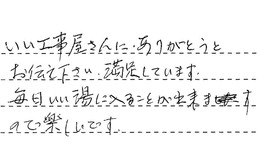 いい工事屋さんに、ありがとうと
お伝え下さい。満足しています。
毎日いい湯に入ることが出来ます
ので楽しいです。